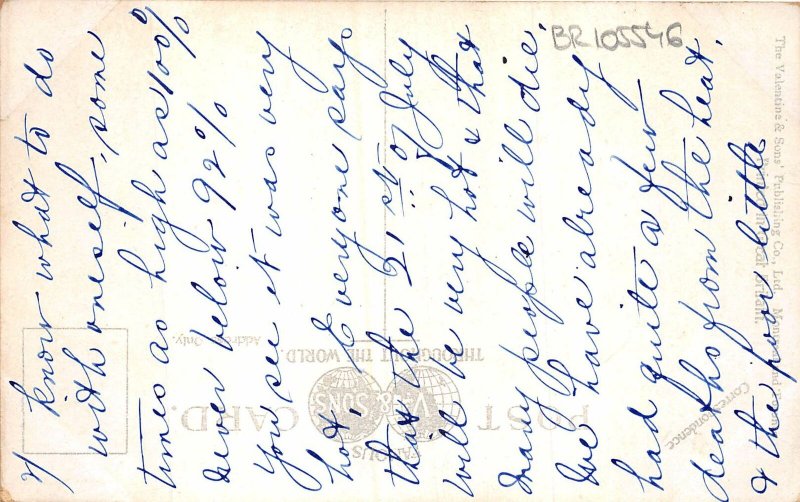 2/ know what to do
with oneself, some
times as high as 100%
never below 92%
You see it was very
hot, Everyone says
that the 21st of July
will be very hot & that
many people will die.
We have already
had quite a few
deaths from the heat,
& the poor little
BR 105546
POST CARD.
FAMOUS
THROUGHOUT THE WORLD.
V. & SONS
Address Only.
Correspondence
The Valentine & Sons' Publishing Co., Ltd.
Printed in Great Britain.